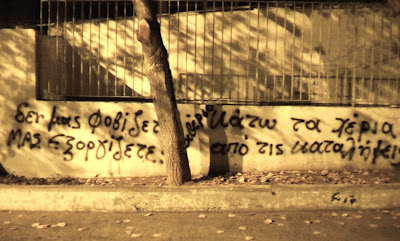 δεν μας φοβίζετε
ΜΑΣ ΕξΟΡΓίζετε.
κάτω τα χέρια
από τις καταλήψεις